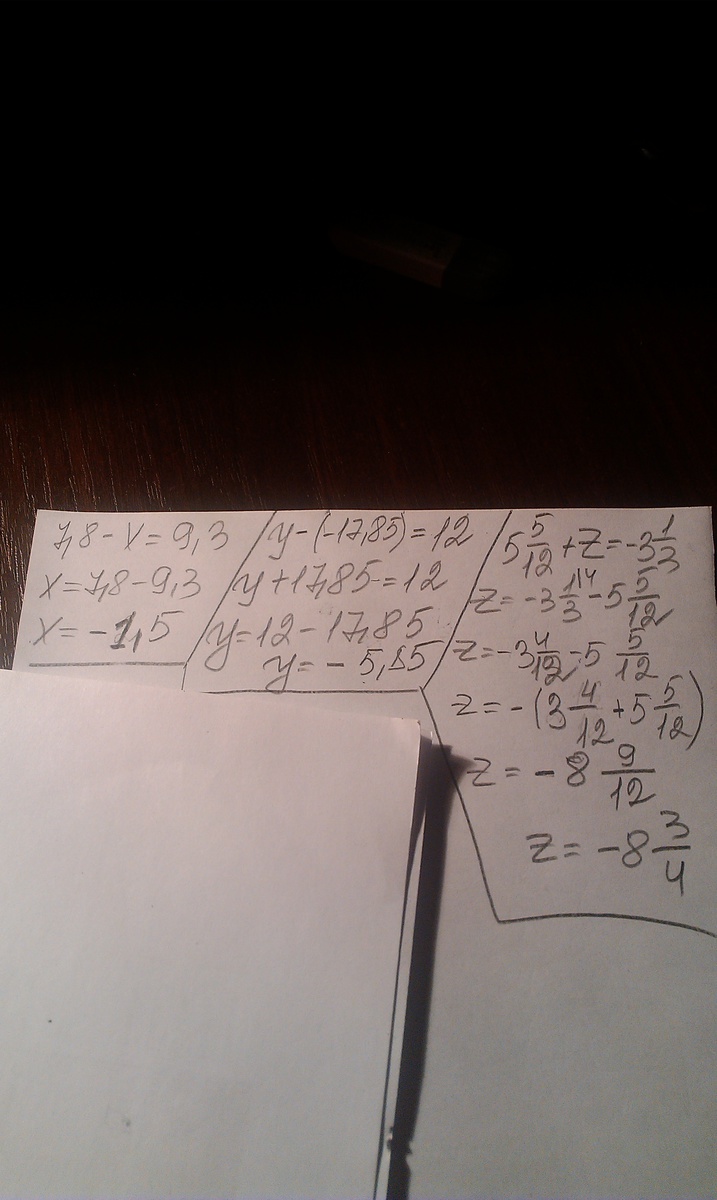 7,8 - x = 9,3
x = 7,8 - 9,3
x = -1,5
y - (-17,85) = 12
y + 17,85 = 12
y = 12 - 17,85
y = - 5,85
5 5/12 + z = -3 1/3
z = -3 1/3 \4 - 5 5/12
z = -3 4/12 - 5 5/12
z = - (3 4/12 + 5 5/12)
z = - 8 9/12
z = -8 3/4